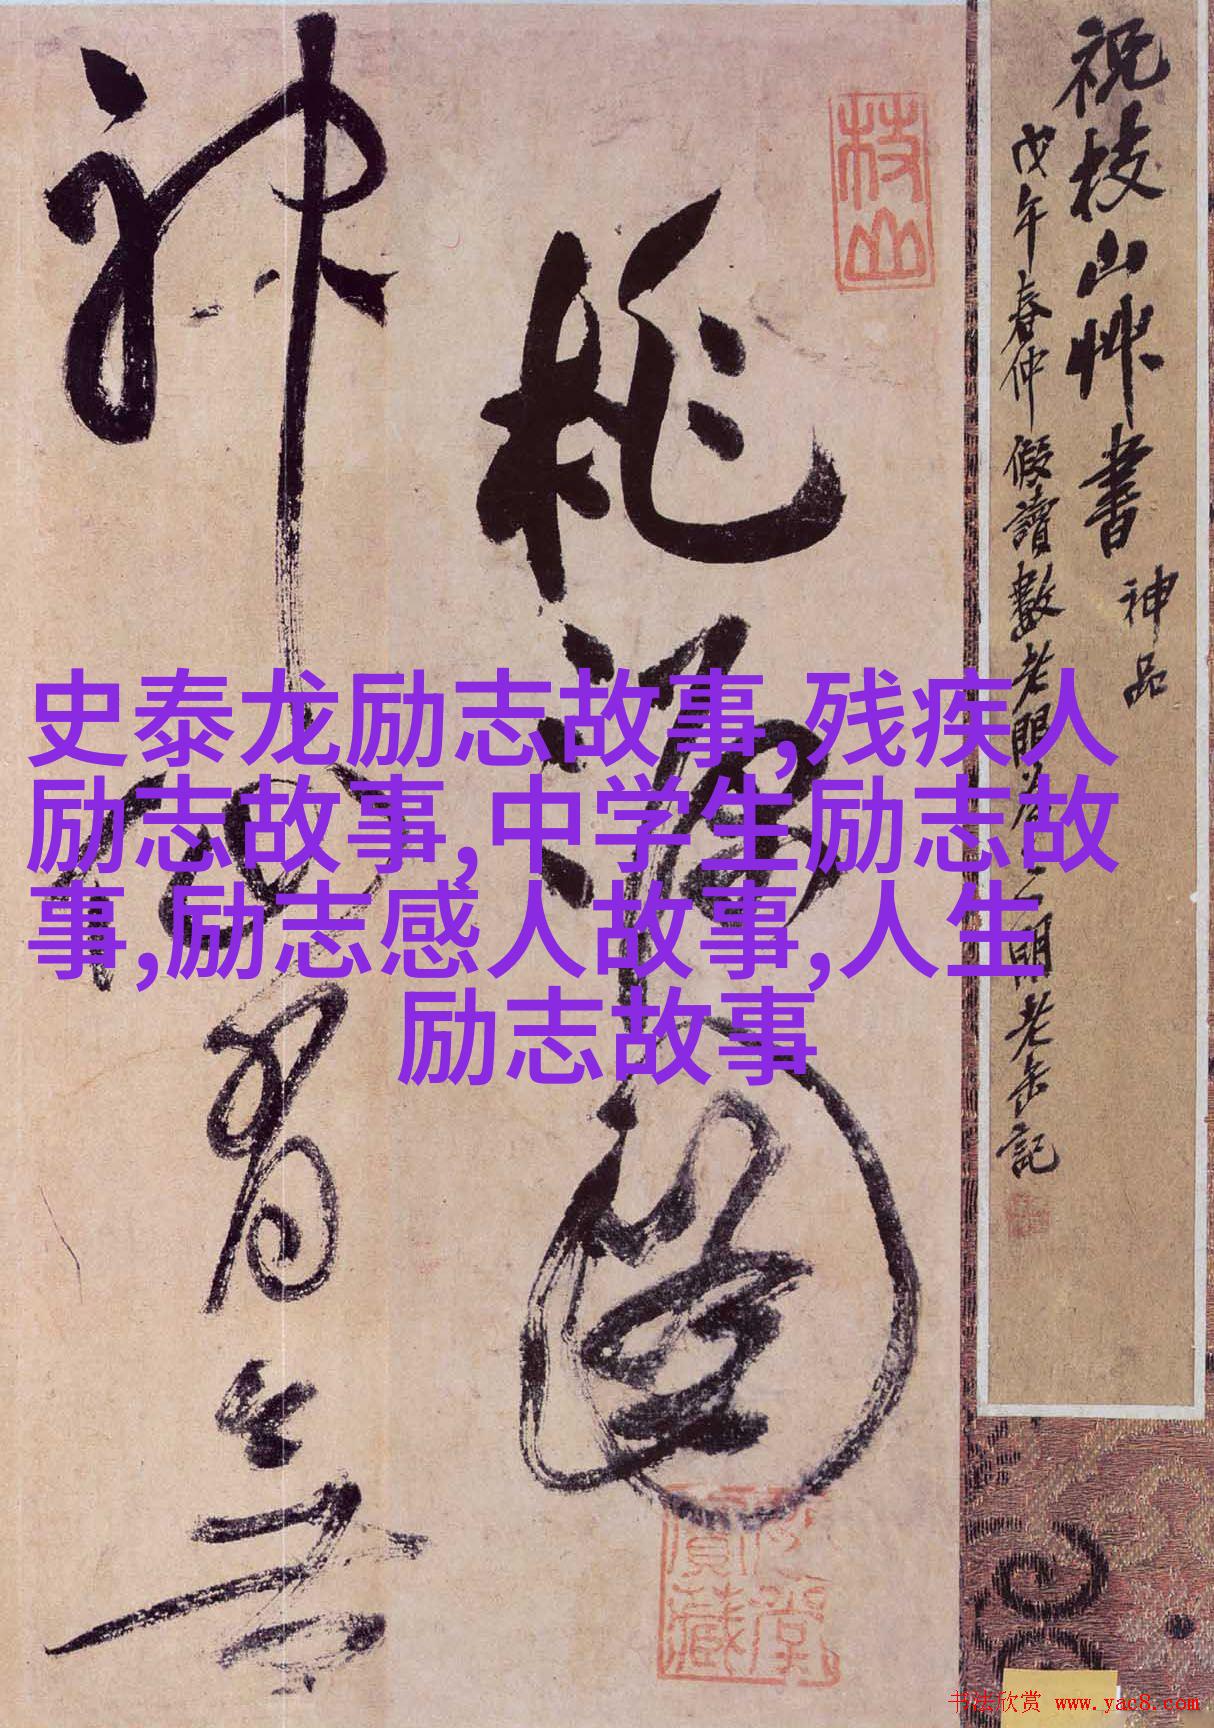 祝枝山艸書
神品
戊午春仲假讀數老眼為之明老缶記
枝山
桃源圖
神仙有無
史泰龙励志故事,残疾人
励志故事,中学生励志故
事,励志感人故事,人生
励志故事
书法欣赏 www.yac8.com